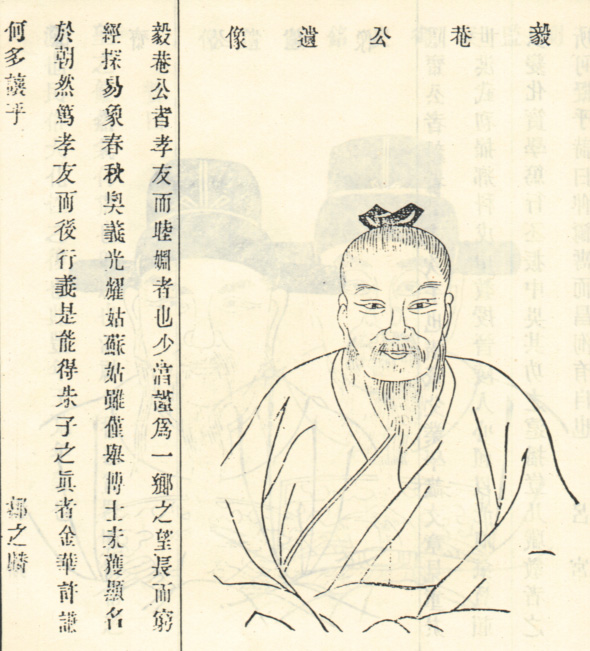 毅菴公遺像
毅菴公者孝友而睦婣者也少謐爲一鄉之望長而窮
經探易象春秋奧義光耀姑蘇姑雖僅舉博士未獲顯名
於朝然篤孝友而後行義是能得朱子之眞者金華許謙
何多讓乎 之